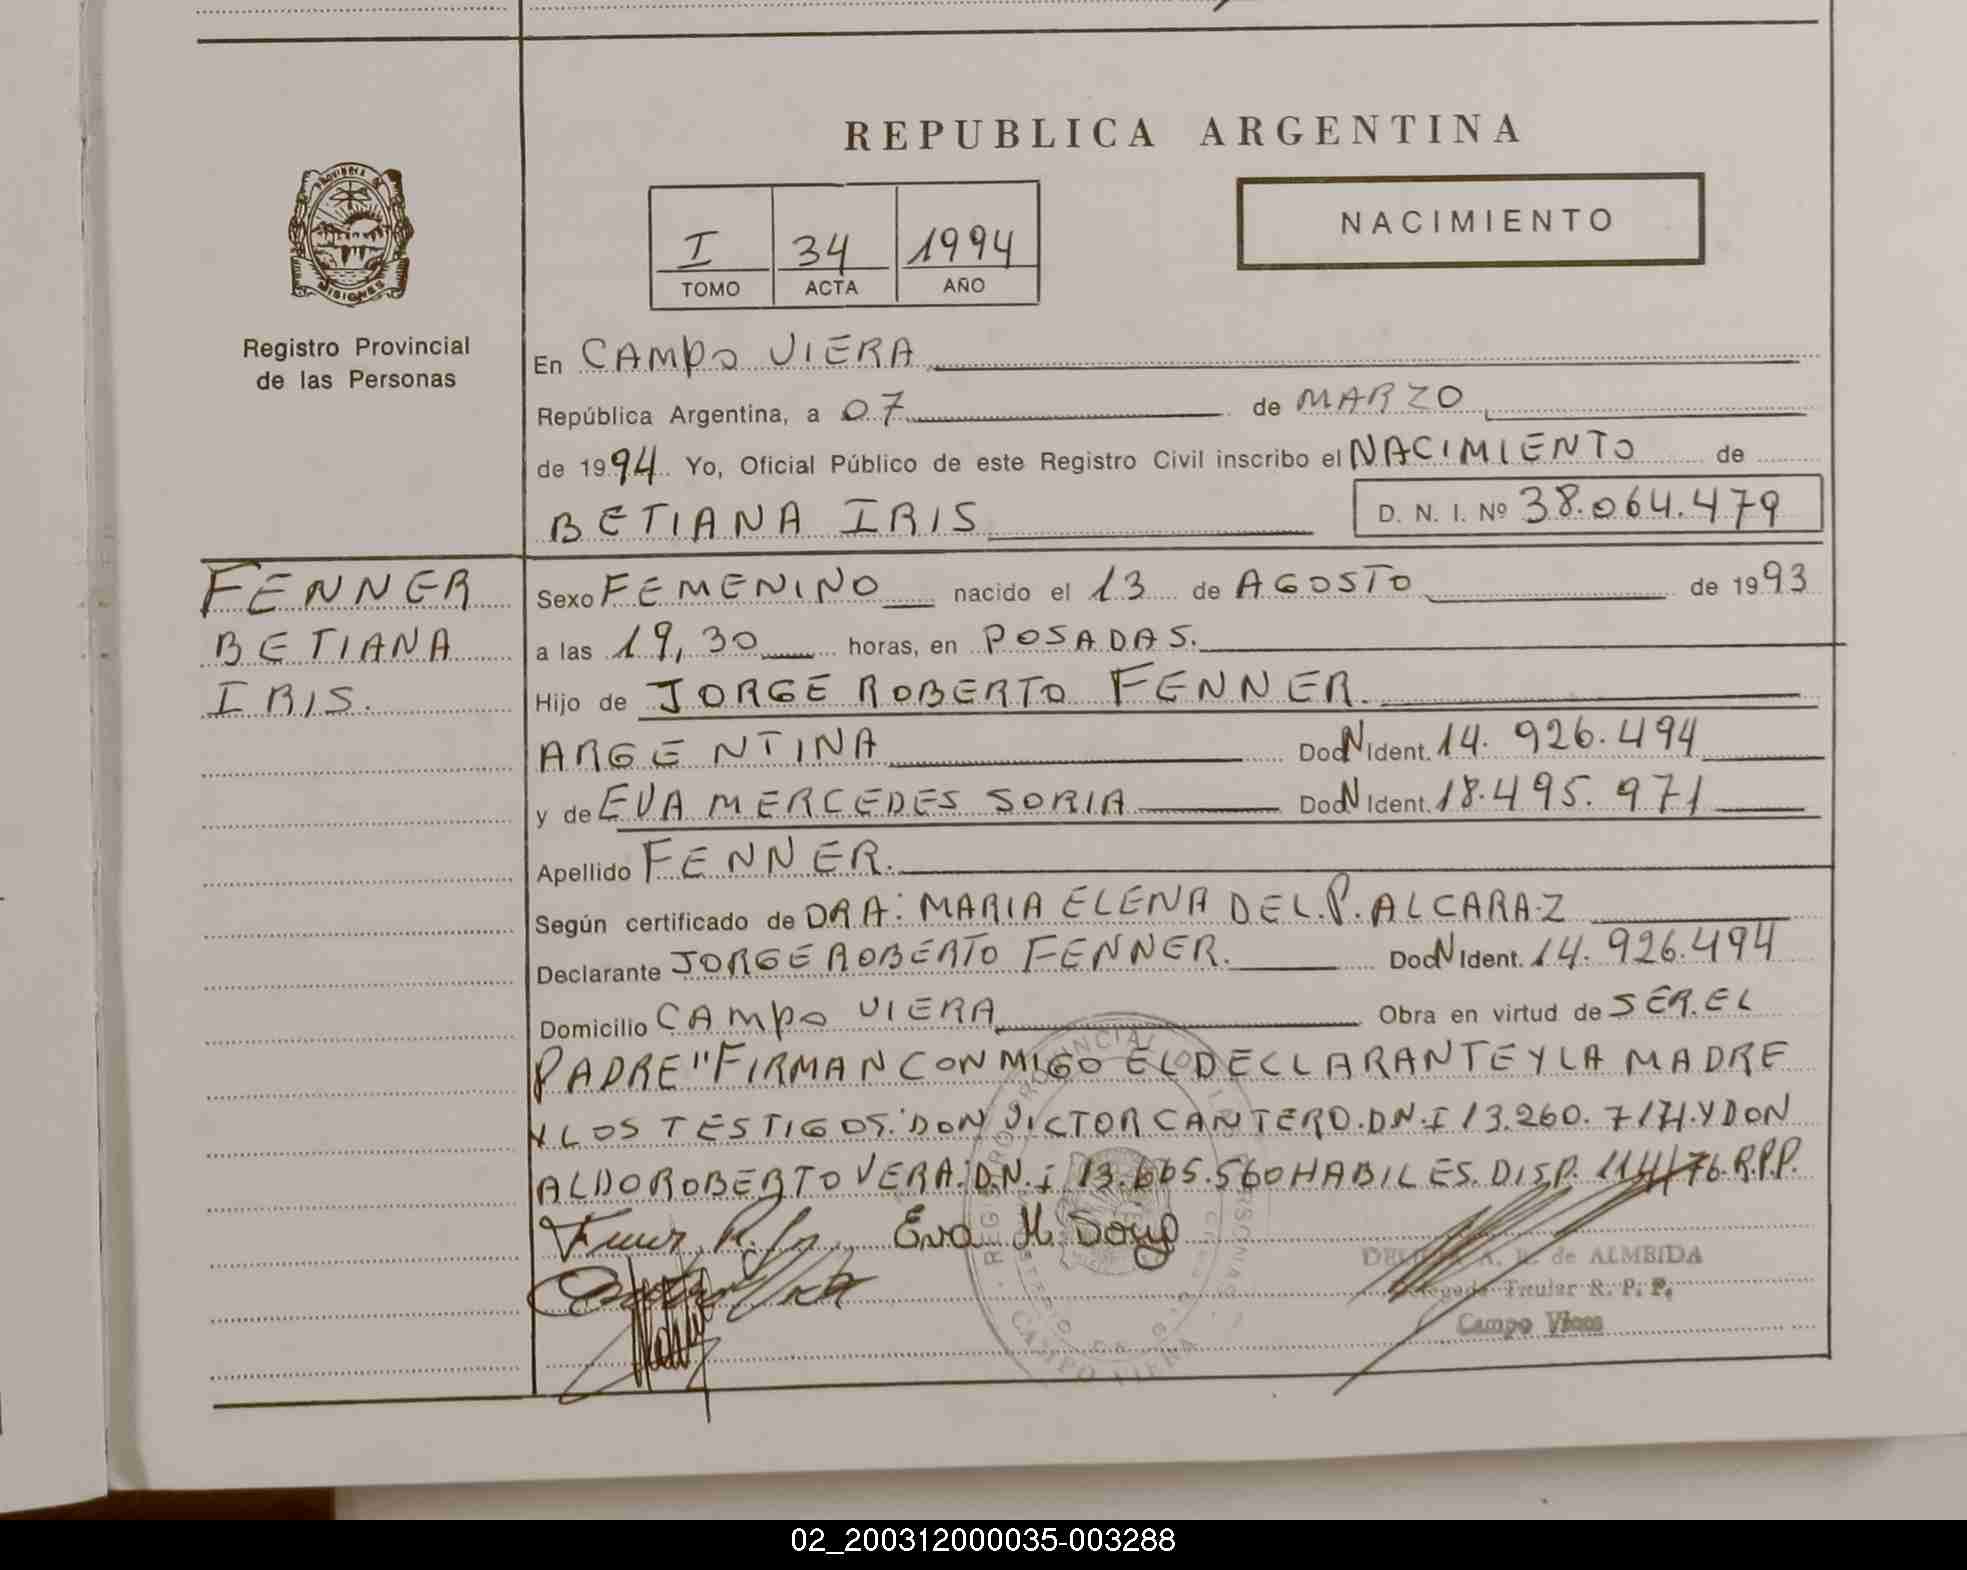 REPUBLICA ARGENTINA
PROVINCIA DE
MISIONES
Registro Provincial
de las Personas
I 34 1994
TOMO ACTA AÑO
NACIMIENTO
En CAMPO VIERA
República Argentina, a 07 de MARZO
de 1994 Yo, Oficial Público de este Registro Civil inscribo el NACIMIENTO de
BETIANA IRIS D. N. I. Nº 38.064.479
FENNER
BETIANA
IRIS.
Sexo FEMENINO nacido el 13 de AGOSTO de 1993
a las 19,30 horas, en POSADAS.
Hijo de JORGE ROBERTO FENNER.
ARGENTINA Doc N Ident. 14.926.494
y de EVA MERCEDES SORIA Doc N Ident. 18.495.971
Apellido FENNER.
Según certificado de DRA: MARIA ELENA DEL.P.ALCARAZ
Declarante JORGE ROBERTO FENNER. Doc N Ident. 14.926.494
Domicilio CAMPO VIERA Obra en virtud de SER.EL
PADRE "FIRMAN CONMIGO EL DECLARANTE Y LA MADRE
Y LOS TESTIGOS: DON VICTOR CANTERO.DN.I 13.260.7171.Y DON
ALDO ROBERTO VERA.D.N.i 13.605.560 HABILES. DISP. 114/76.R.P.P.
Eva M. Soria
A. de ALMEIDA
Titular R. P. P.
Campo Viera
REGISTRO PROVINCIAL
CAMPO VIERA
02_200312000035-003288